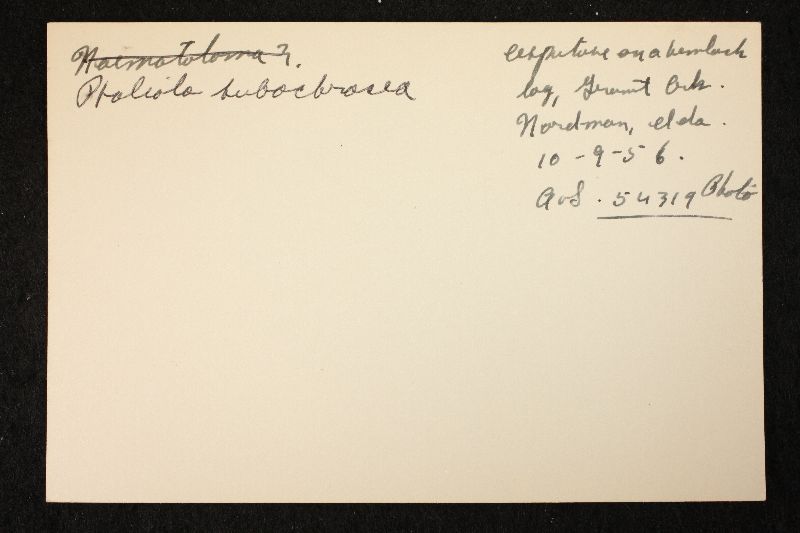 Naematoloma ?.
Pholiota subochracea
cespitose on a hemlock
log, Granit Crk.
Nordman, Ida.
10-9-56.
AHS. 54319 Photo